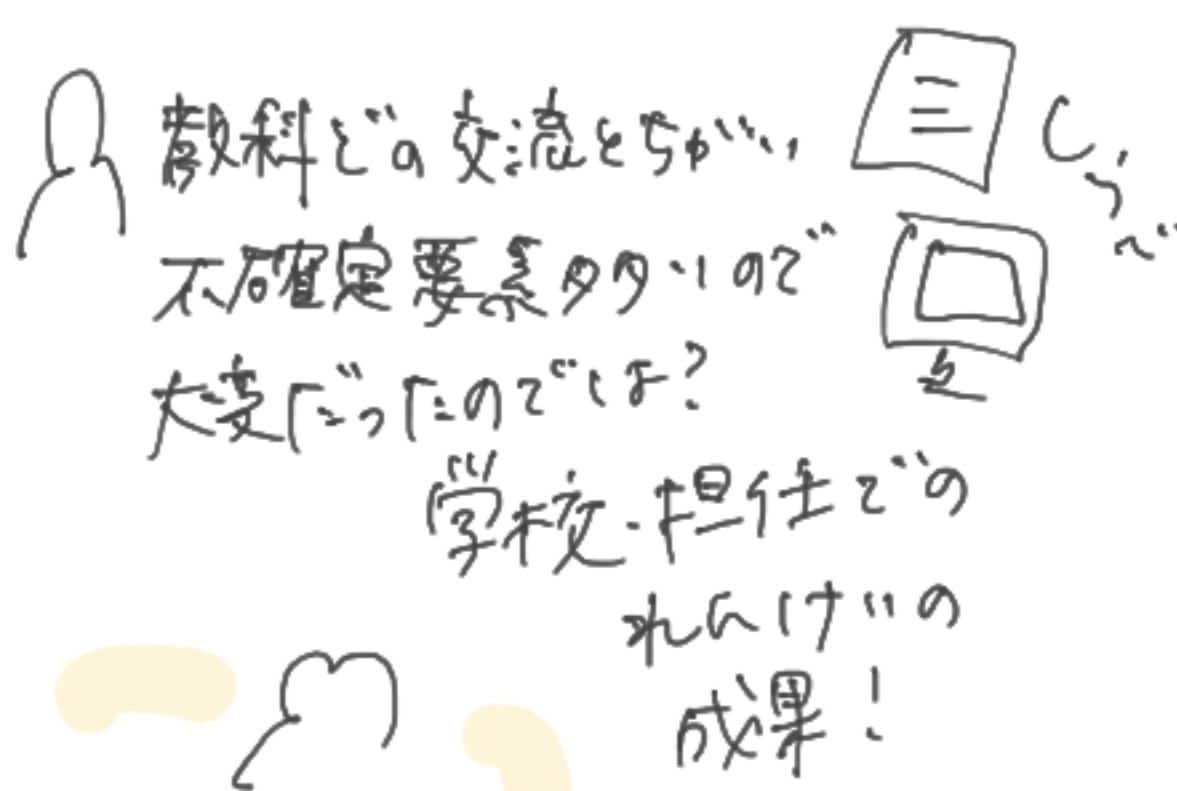 教科どの交流とちがい、
不確定要素タタいので
大変だったのでは?
学校・担任での
れんけいの
成果!